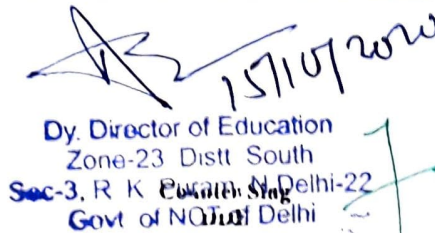 15/10/2020
Dy. Director of Education
Zone-23 Distt South
Sec-3, R K Puram N Delhi-22
Govt of NCT of Delhi